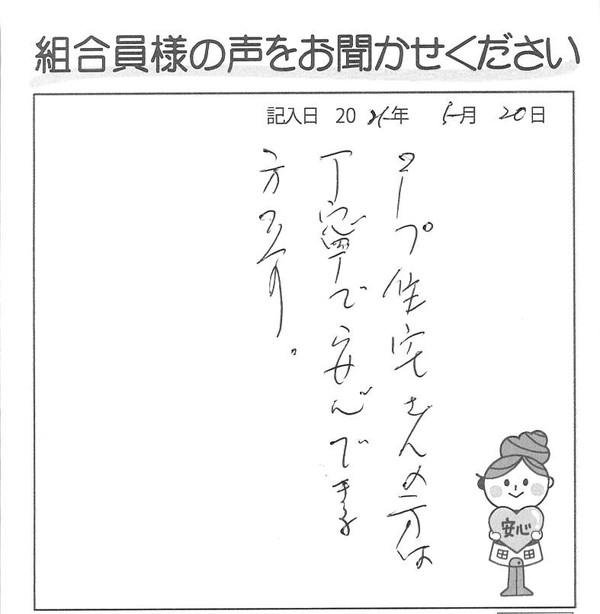 組合員様の声をお聞かせください
記入日 2025年 5月 20日
コープ住宅さんの方は
丁寧で安心できる
方々です。
安心